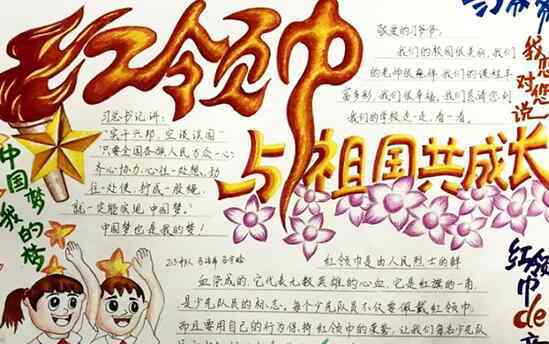 红领巾
与祖国共成长
敬爱的习爷爷:
我们的校园很美丽,我们
的老师很慈祥,我们的课程丰
富多彩,我们很幸福,我们恳请您到
我们的学校走一走,看一看。
我想
对您
说
习总书记讲:
"实干兴邦,空谈误国"
"只要全国各族人民万众一心,
齐心协力,心往一处想,劲
往一处使,拧成一股绳,
就一定能实现中国梦。"
中国梦也是我的梦!
中国梦
我的梦
红领巾是由人民烈士的鲜
血染成的,它代表无数英雄的心血,它是红旗的一角,
是少先队员的标志。每个少先队员不仅要佩戴红领巾,
而且要用自己的行为保持红领巾的荣誉,让我们每名少先队
红领
巾
de